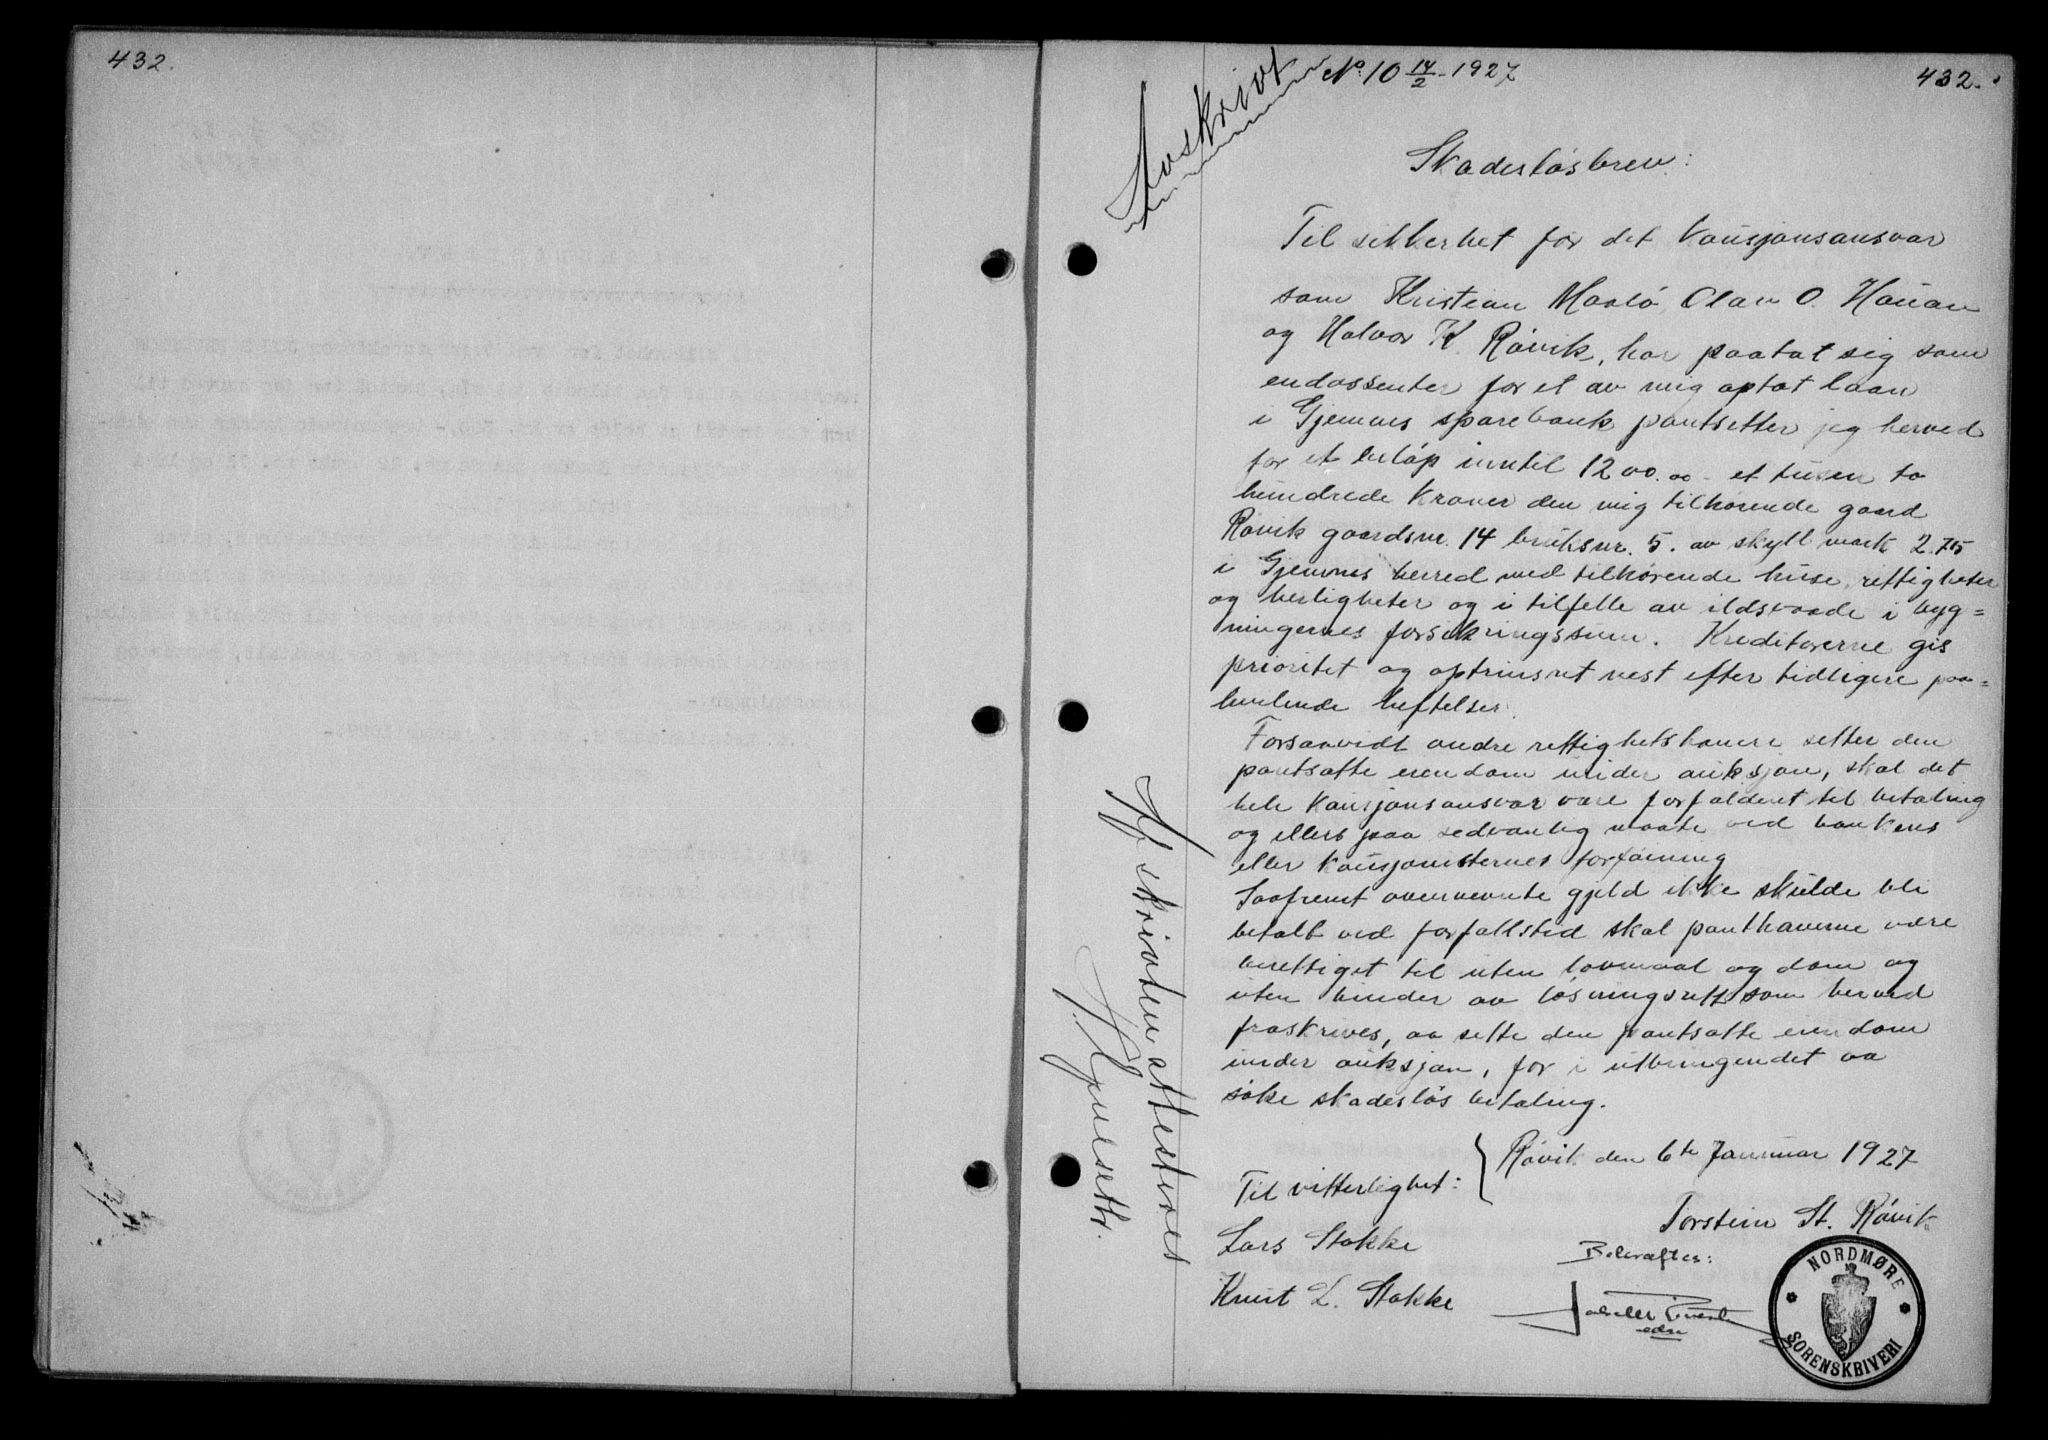 432.
No. 10 14/2 - 1927
432.
Avskrivt
Skadesløsbrev:
Til sikkerhet for det kausjonsansvar
som Kristian Maalø, Olav O. Hauan
og Halvor K. Røvik, har paatat sig som
endossenter for et av mig optat laan
i Gjemnes sparebank pantsetter jeg herved
for et beløp inntil 1200.00 - et tusen to
hundrede kroner den mig tilhørende gaard
Røvik gaardsnr. 14 bruksnr. 5. av skyll mark 2.75
i Gjemnes herred med tilhørende huse, rettigheter
og herligheter og i tilfelle av ildsvaade i byg=
ningernes forsikringssum. Kreditorerne gis
prioritet og optrinsret nest efter tidligere paa=
hvilende heftelser.
Forsaavidt andre rettighetshavere setter den
pantsatte eiendom under auksjon, skal det
hele kausjonsansvar være forfaldent til betaling
og ellers paa sedvanlig maate ved bankens
eller kausjonisternes forføining
Saafremt ovennevnte gjeld ikke skulde bli
betalt ved forfallstid skal panthaverne være
berettiget til uten lovmaal og dom og
uten hinder av løsningsrett som herved
fraskrives, aa sette den pantsatte eiendom
under auksjon, for i utbringendet aa
søke skadesløs betaling.
Røvik den 6te Januar 1927
Til vitterlighet:
Torstein St. Røvik
Lars Stokke
Bekræftes:
Knut L. Stokke
edsv
NORDMØRE
SORENSKRIVERI
Afskrivten attesteres
H. Hjulseth.